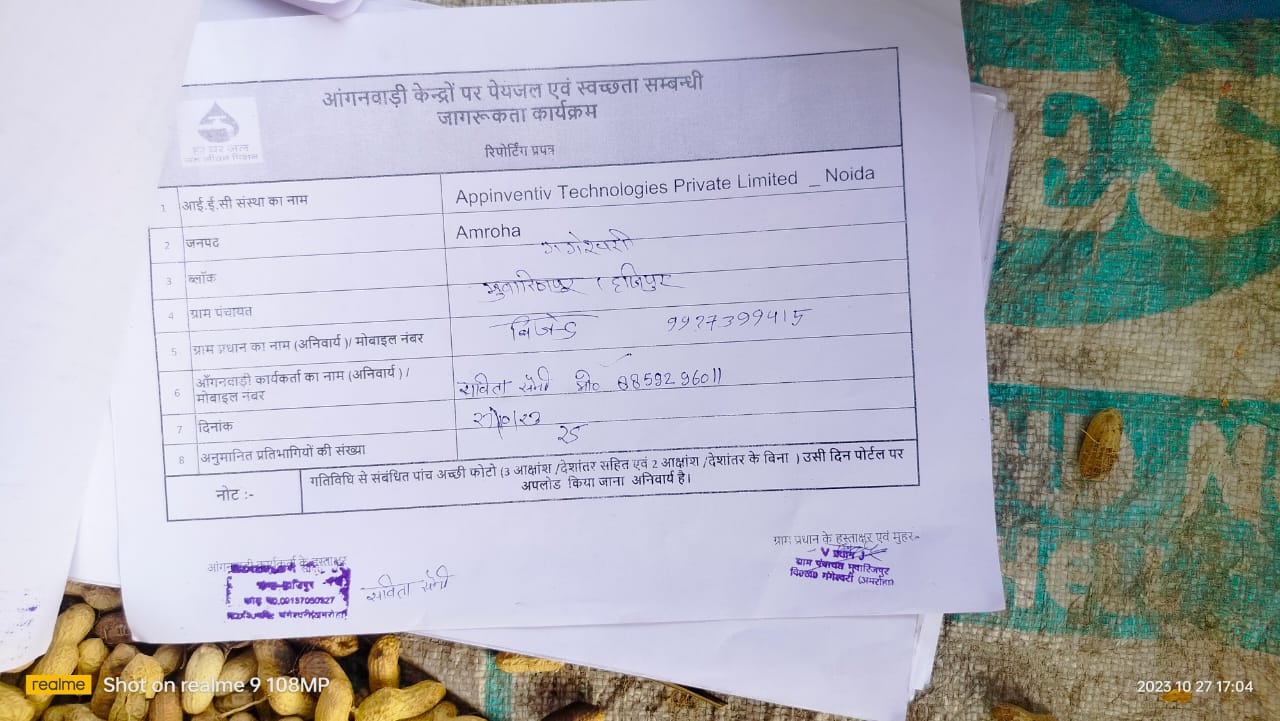 आंगनवाड़ी केन्द्रों पर पेयजल एवं स्वच्छता सम्बन्धी
जागरूकता कार्यक्रम
हर घर जल
जल जीवन मिशन
रिपोर्टिंग प्रपत्र
1 आई.ई.सी संस्था का नाम Appinventiv Technologies Private Limited _ Noida
2 जनपद Amroha
3 ब्लॉक गंगेश्वरी
4 ग्राम पंचायत मुवारिजपुर / हाजिपुर
5 ग्राम प्रधान का नाम (अनिवार्य )/ मोबाइल नंबर 9927399415
6 आँगनवाड़ी कार्यकर्ता का नाम (अनिवार्य ) /
मोबाइल नंबर सविता सैनी 8859296011
7 दिनांक
8 अनुमानित प्रतिभागियों की संख्या २५
नोट :- गतिविधि से संबंधित पांच अच्छी फोटो (3 आक्षांश /देशांतर सहित एवं 2 आक्षांश /देशांतर के बिना ) उसी दिन पोर्टल पर
अपलोड किया जाना अनिवार्य है।
आंगनवाड़ी कार्यकर्ता के हस्ताक्षर
सविता सैनी
ग्राम प्रधान के हस्ताक्षर एवं मुहर
प्रधान
ग्राम पंचायत मुवारिजपुर
वि०ख० गंगेश्वरी (अमरोहा)
realme Shot on realme 9 108MP
2023 10 27 17:04